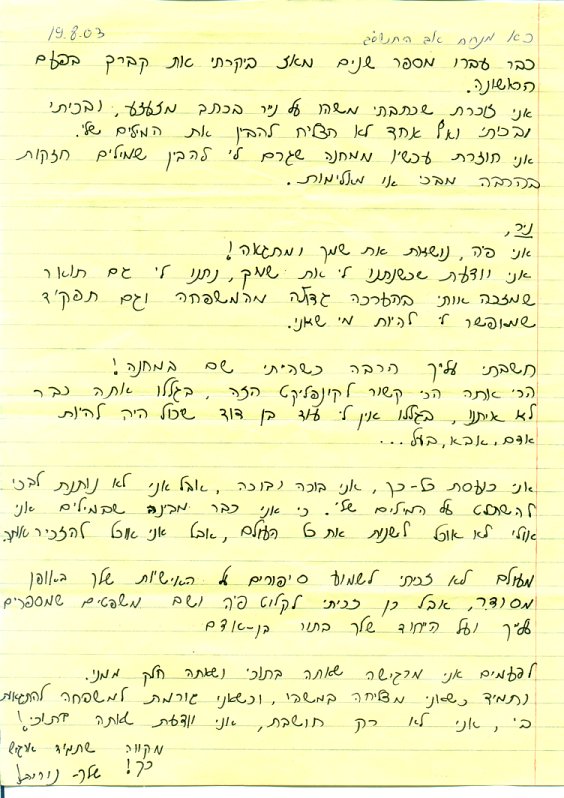 19.8.03 כא מנחם אב התשס"ג
כבר עברו מספר שנים מאז ביקרתי את קברך בפעם
הראשונה.
אני זוכרת שכתבתי משהו על נייר בכתב מזעזע, ובכיתי
ובכיתי ואף אחד לא הצליח להבין את המילים שלי.
אני חוזרת עכשיו ממחנה שגרם לי להבין שמילים חזקות
בהרבה מבכי או מאלימות.
ניר,
אני פה, נושאת את שמך ומתגאה!
אני יודעת שכשנתנו לי את שמך, נתנו לי גם תואר
שמזכה אותי בהערכה גדולה מהמשפחה וגם תפקיד
שמאפשר לי להיות מי שאני.
חשבתי עליך הרבה כשהייתי שם במחנה!
הרי אתה הכי קשור לקונפליקט הזה, בגללו אתה כבר
לא איתנו, בגללו אין לי עוד בן דוד שיכול היה להיות
אדם, אבא, בעל...
אני כועסת כל-כך, אני בוכה ובוכה, אבל אני לא נותנת לבכי
להשתלט על המילים שלי. כי אני כבר מבינה שבמילים אני
אולי לא אוכל לשנות את כל העולם, אבל אני אוכל להזכיר אותך.
מעולם לא זכיתי לשמוע סיפורים על האישיות שלך באופן
מסודר, אבל כן זכיתי לקלוט פה ושם משפטים שמספרים
עליך ועל הייחוד שלך בתור בן-אדם
לפעמים אני מרגישה שאתה בתוכי ושאתה חלק ממני.
ותמיד כשאני מצליחה במשהו, וכשאני גורמת למשפחה להתגאות
בי, אני לא רק חושבת, אני יודעת שאתה בתוכי!
מקווה שתמיד ארגיש
כך!
שלך-